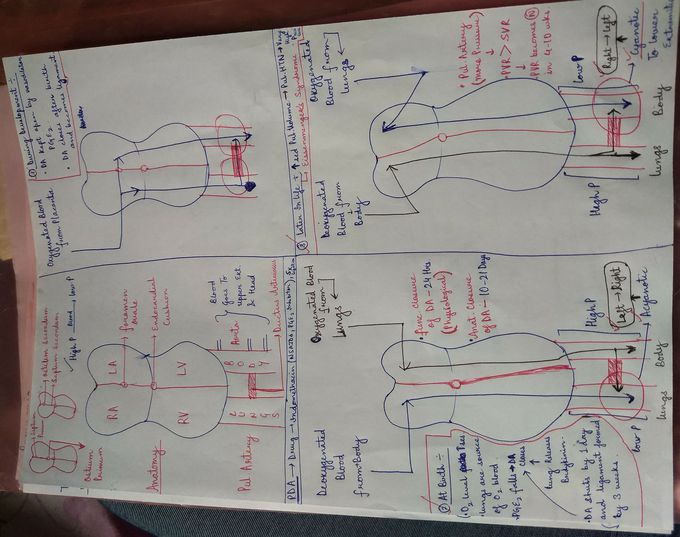 Septum
Ostium secundum
Septum secundum
Ostium
Primum
High P Blood → Low P
Anatomy
RA
LA
Foramen
ovale
Endocardial
Cushion
RV
LV
LUNGS
BODY
Aorta
Blood
goes To
upper Ext
& Head
Pul Artery
Ductus arteriosus
① During Development :-
• DA kept open by
PGE2
• DA closes after birth
and becomes ligament.
Oxygenated Blood
from Placenta
PDA → Drug → Indomethacin (NSAIDs, PGE2 Inhibitor)
Deoxygenated
Blood
from Body
Oxygenated Blood
from
Lungs
② At Birth :-
• O2 level
• Lungs are source
of O2 blood.
• PGE2 falls → DA
closes
Lung Releases
Bradykinin
• DA shuts by 1 day
and ligament formed
by 3 weeks.
• Func closure
of DA - 24 Hrs
(Physiological)
• Anat. closure
of DA - 10-21 Days
Low P
High P
Lungs
Body
Left → Right
Acyanotic
③ Later In Life + ↑sed Pul Volume → Pul. HTN →
Eisenmenger's Syndrome
Deoxygenated
Blood from
Body
Oxygenated
Blood from
Lungs
• Pul Artery
(more Pressure)
↓
PVR > SVR
↓
PVR becomes N
in 4-10 wks
High P
Low P
Lungs
Body
Right → Left
Cyanotic
To Lower
Extremities